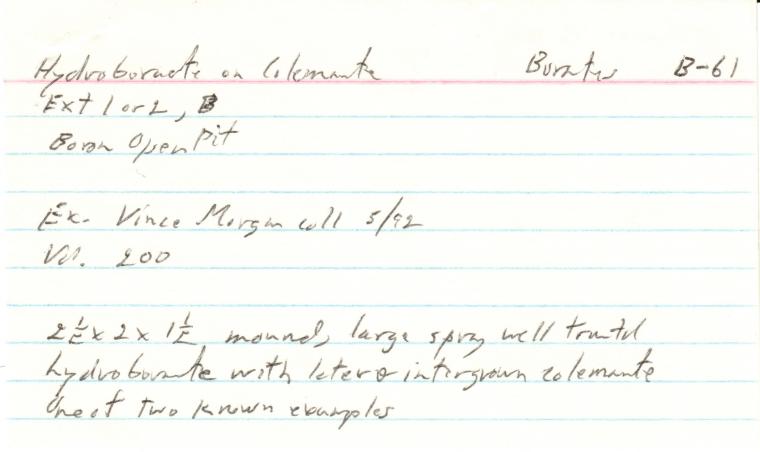 Hydroboracite on Colemanite Borates B-61
Ext 1 or 2, B
Boron Open Pit
Ex. Vince Morgan coll 5/92
Val. 200
2½ x 2 x 1½ mound, large spray well
hydroboracite with later intergrown colemanite
One of two known examples